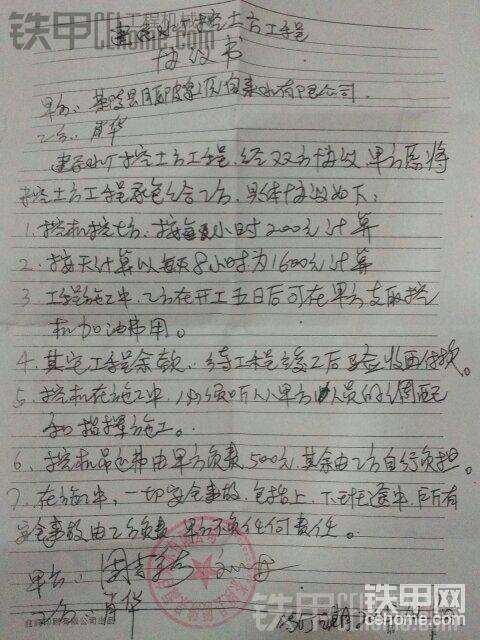 铁甲工程机械
建泵水厂挖土方工程
协议书
甲方:茶陵县 有限公司.
乙方:肖华
建泵水厂挖土方工程,经双方协议,甲方愿将
挖土方工程承包给乙方,具体协议如下:
1.挖机挖土方:按每小时200元计算
2.按天计算以每天8小时为1600元计算
3、工程施工中,乙方在开工五日后可在甲方支取挖
机加油费用。
4、其它工程余款,待工程竣工后验收再付款。
5、挖机在施工中,必须听从甲方人员的调配
和指挥施工。
6、挖机吊运费由甲方负责500元,其余由乙方自行负担。
7、在施工中,一切安全事故,包括上、下班途中,所有
安全事故由乙方负责,甲方不负任何责任。
甲方:
乙方:肖华
印刷有限公司出品
铁甲网
cehome.com